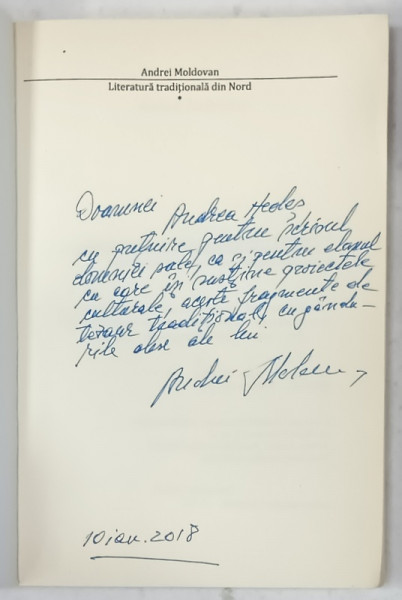 Andrei Moldovan
Literatură tradițională din Nord
Doamnei Andrea Hedeș
cu prețuire pentru scrisul
domniei sale, ca și pentru elanul
cu care își susține proiectele
culturale, aceste fragmente de
tezaur tradițional, cu gându-
rile alese ale lui
Andrei Moldovan
10 ian. 2018